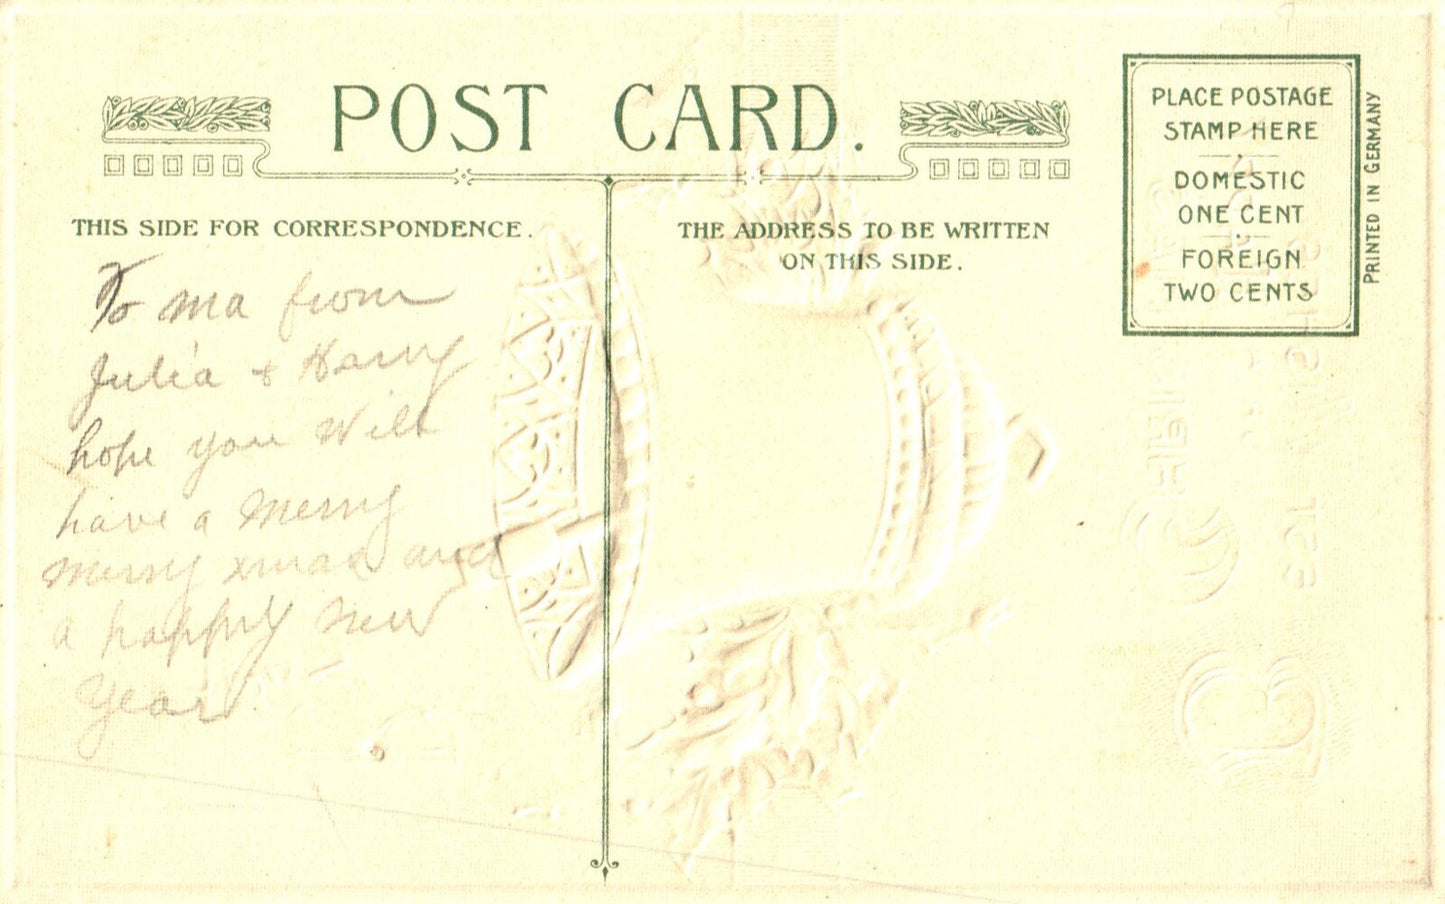 POST CARD.
THIS SIDE FOR CORRESPONDENCE.
To Ma from
Julia + Harry
hope you will
have a merry
merry xmas and
a happy new
year
THE ADDRESS TO BE WRITTEN
ON THIS SIDE.
PLACE POSTAGE
STAMP HERE
DOMESTIC
ONE CENT
FOREIGN
TWO CENTS
PRINTED IN GERMANY